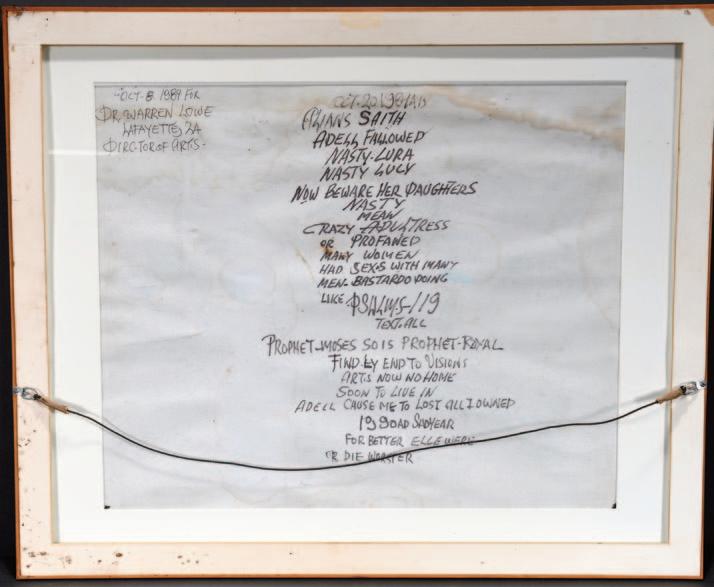 OCT-8 1989 FOR
DR. WARREN LOWE
LAFAYETTE LA
DIRCTOR OF ARTS-
OCT-20 1989AD
SAITH
ADELL FALLOWED
NASTY-LURA
NASTY LUCY
NOW BEWARE HER DAUGHTERS
NASTY
MEAN
CRAZY ADULTRESS
OR PROFANED
MANY WOMEN
HAD SEX-S WITH MANY
MEN-BASTARDO DOING
LIKE PSALMS-119
TEXT-ALL
PROPHET-MOSES SO IS PROPHET-ROYAL
FIND-LY END TO VISIONS
ARTS NOW NO HOME
SOON TO LIVE IN
ADELL CAUSE ME TO LOST ALL I OWNED
1990AD SADYEAR
FOR BETTER ELLEWERE
OR DIE WORSTER